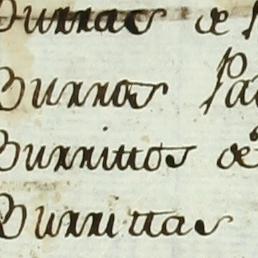 Burras de
Burros Pa
Burrittos de
Burrittas